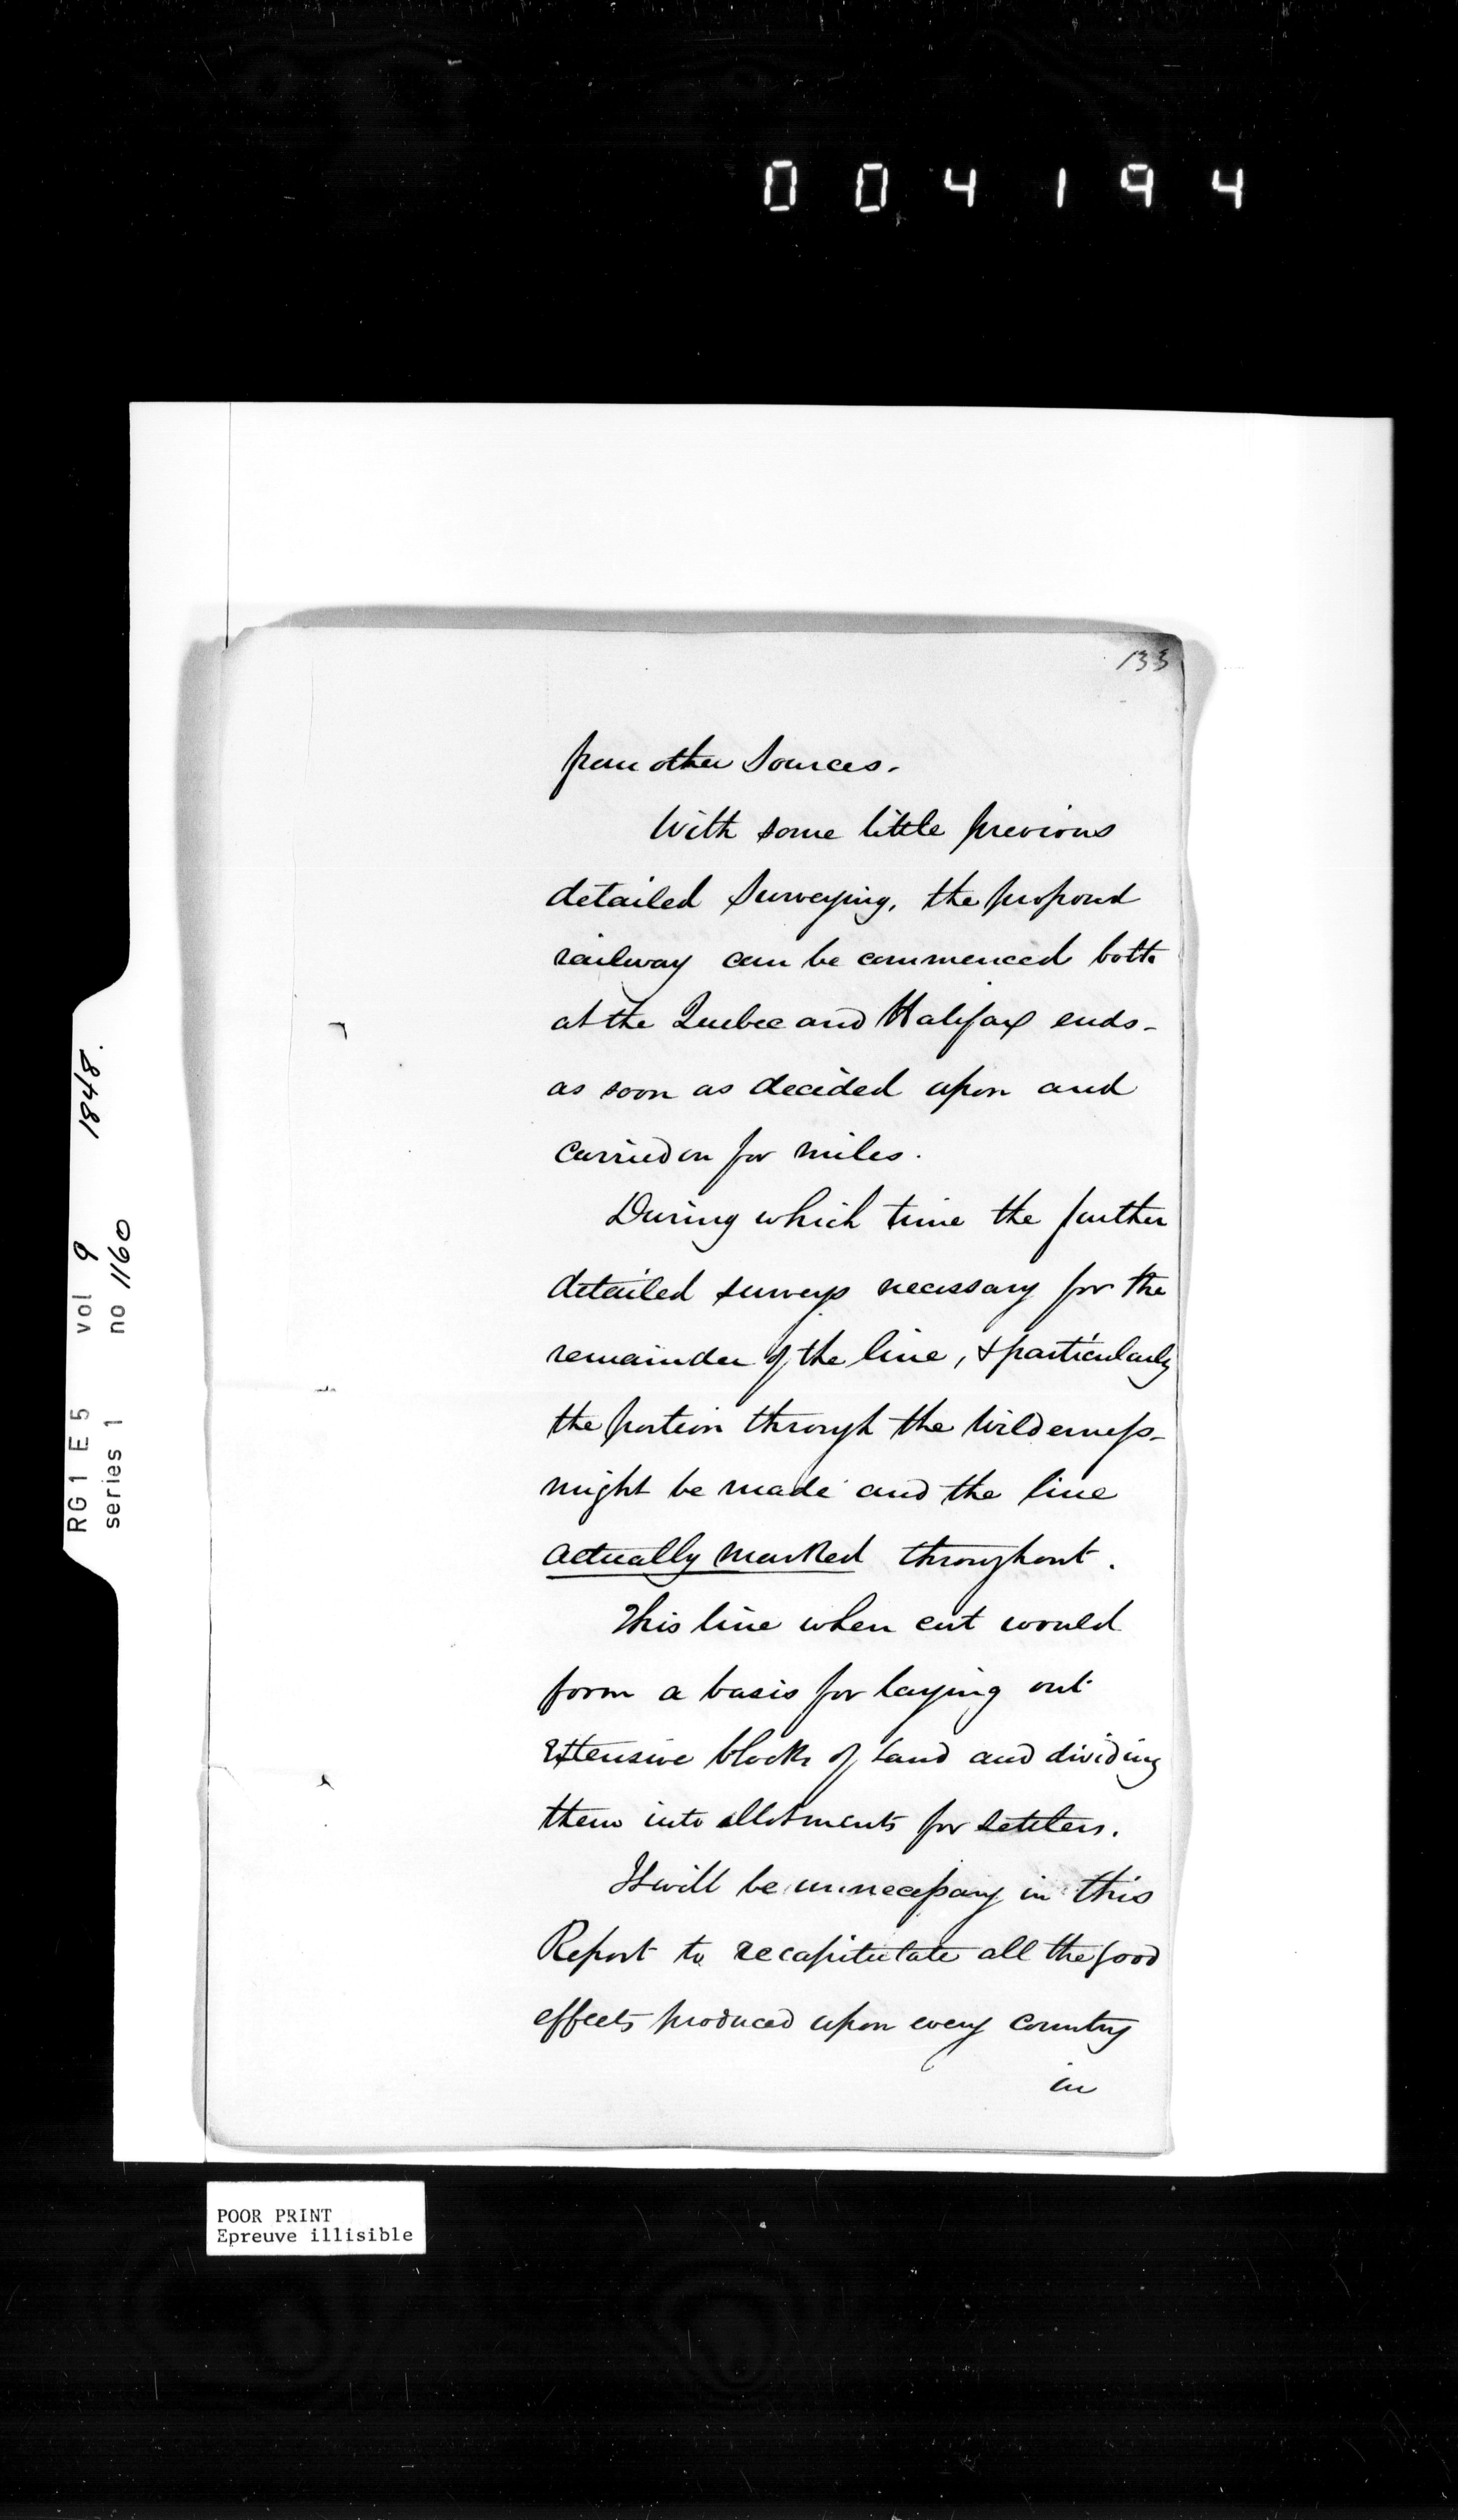 004194
133
from other Sources.
With some little previous
detailed Surveying, the proposed
railway can be commenced both
at the Quebec and Halifax ends-
as soon as decided upon and
carried on for miles.
During which time the further
detailed surveys necessary for the
remainder of the line, & particularly
the portion through the Wilderness-
might be made and the line
actually marked throughout.
This line when cut would
form a basis for laying out
extensive blocks of land and dividing
them into allotments for settlers.
It will be unnecessary in this
Report to recapitulate all the good
effects produced upon every country
in
RG 1 E 5 vol 9 1848.
series 1 no 1160
POOR PRINT
Epreuve illisible